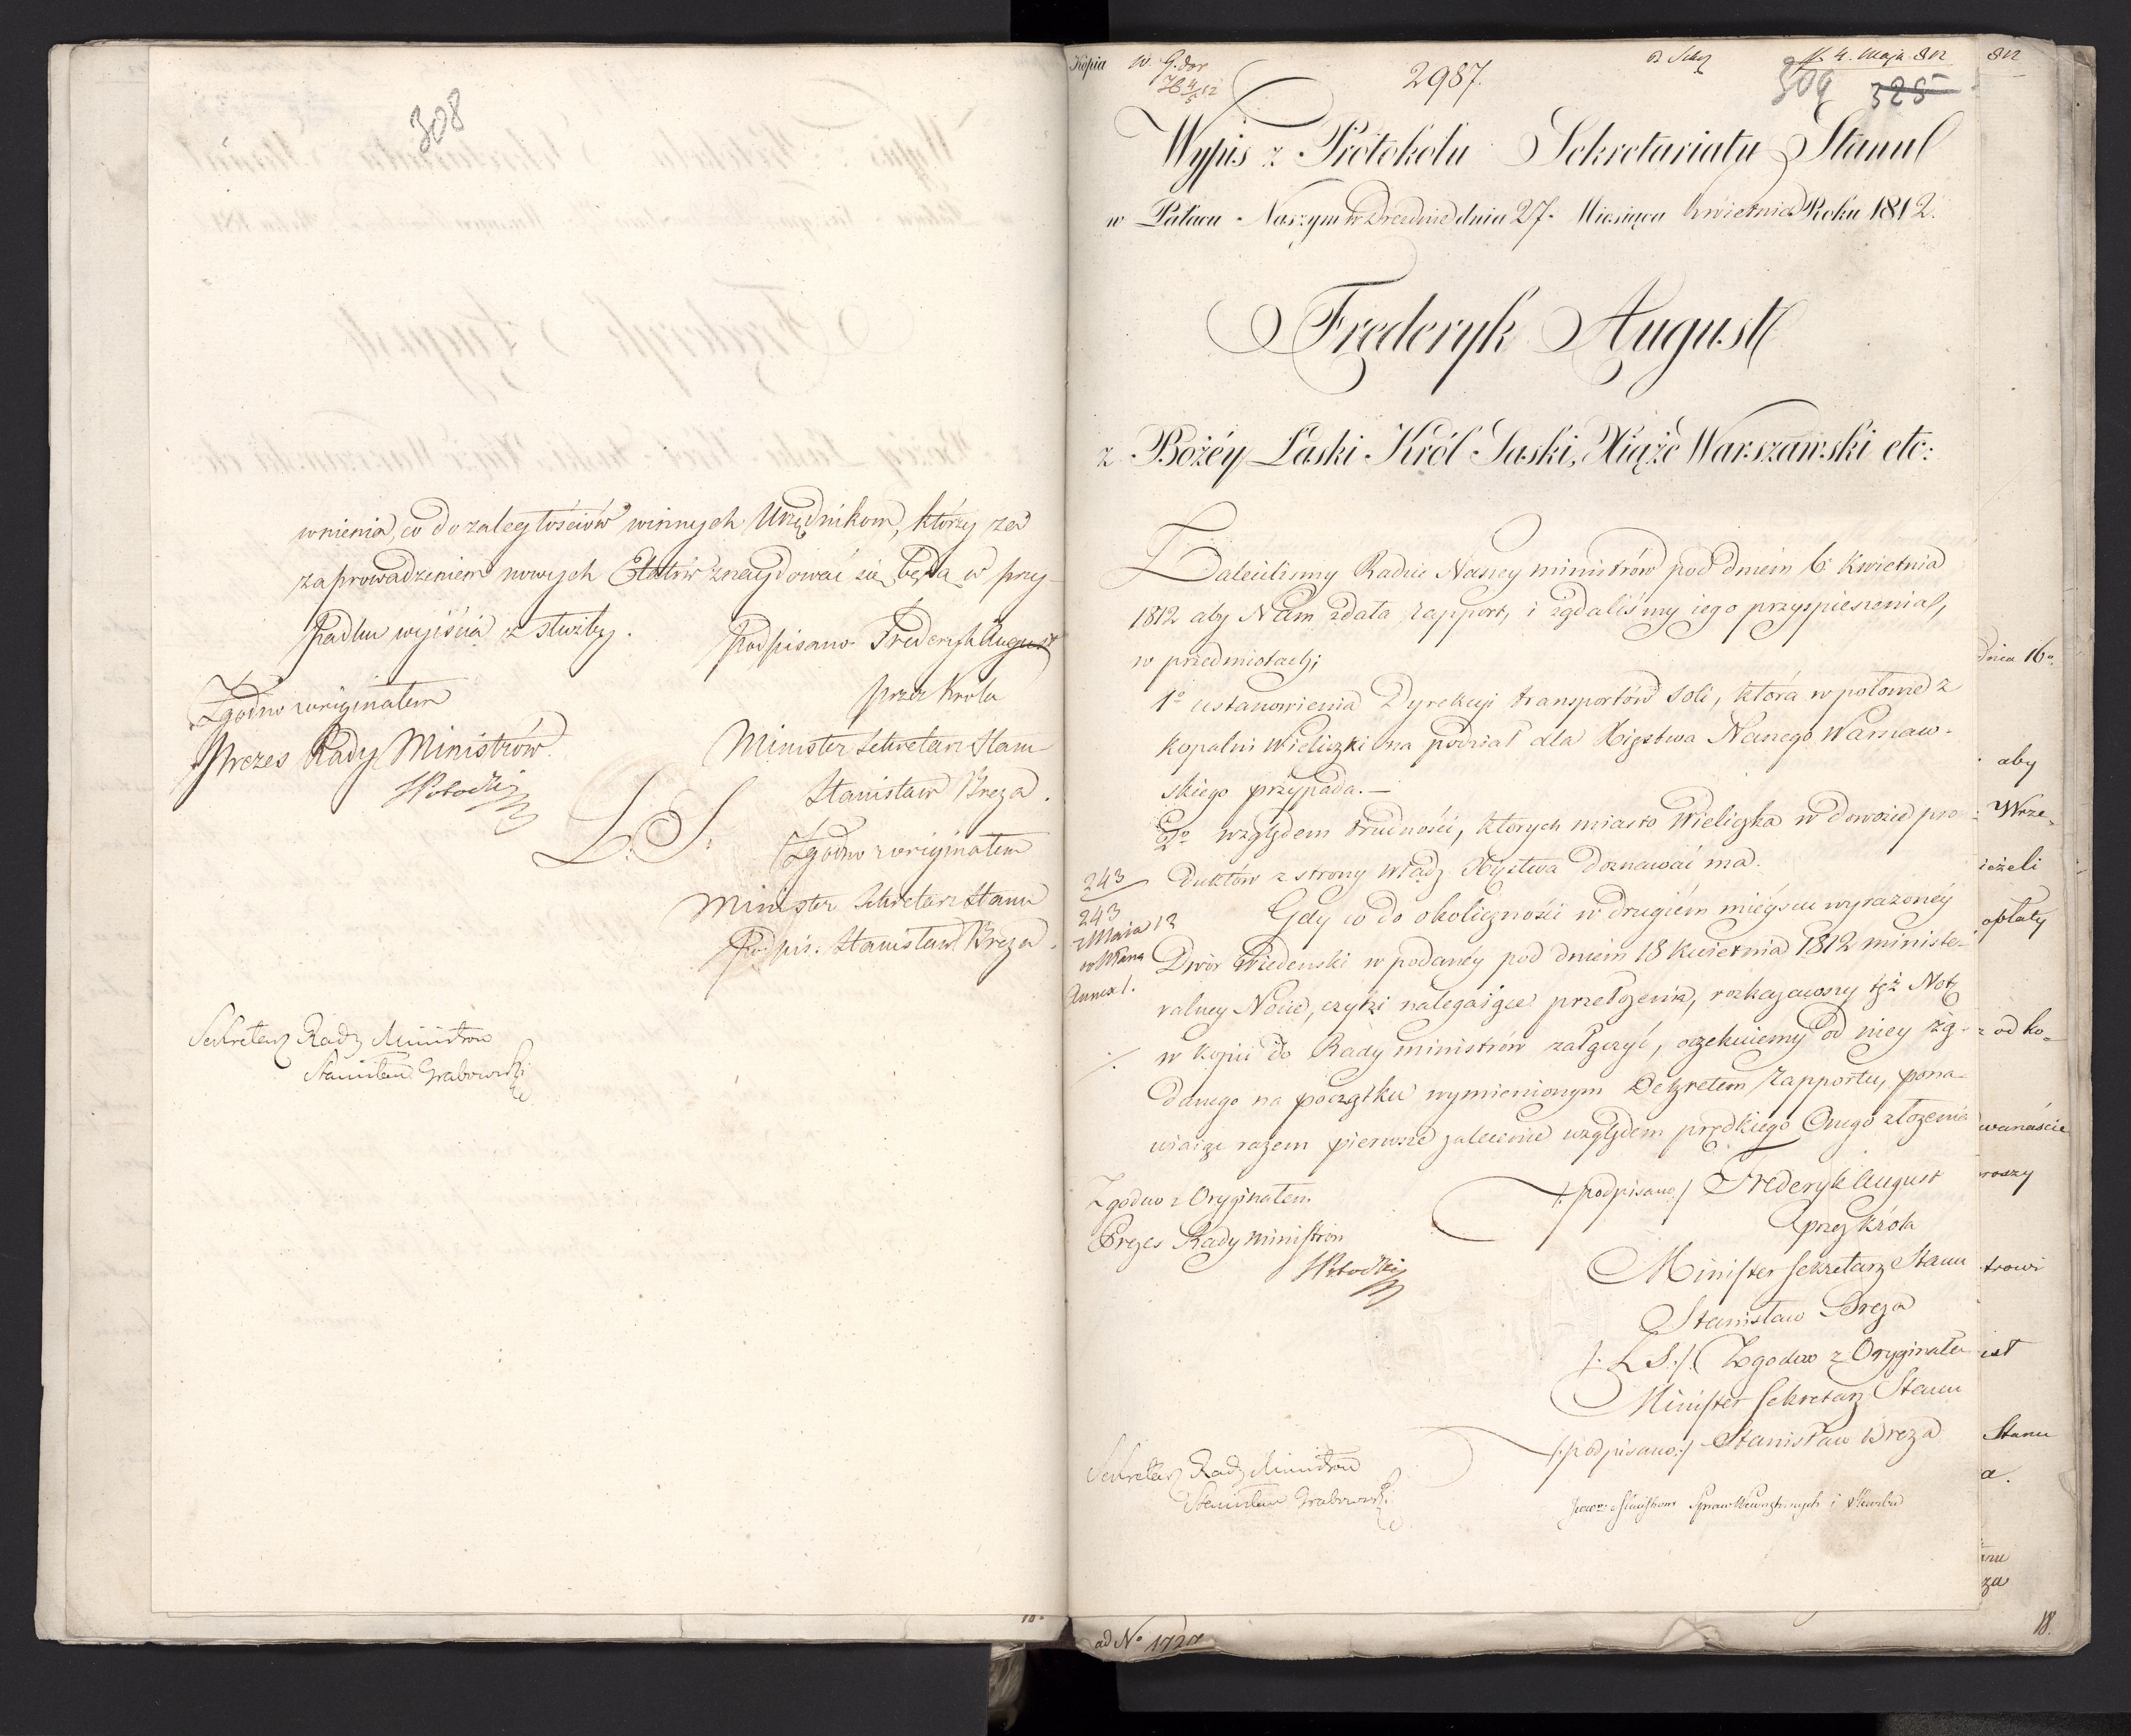 308
wnienia, co do zaległościów winnych Urzędnikom, którzy za
zaprowadzeniem nowych Etatów znaydować się będą w przy-
padku wyiścia z służby.
Podpisano Frederyk August
przez Króla
Minister Sekretarz Stanu
Stanisław Breza.
L. S.
Zgodno z originałem
Minister Sekretarz Stanu
Podpis. Stanisław Breza.
Zgodno z originałem
Prezes Rady Ministrów
Sekretarz Rady Ministrów
Stanisław Grabowski
Kopia
2987.
4. Maja 812
309 325
Wypis z Protokółu Sekretariatu Stanu
w Pałacu Naszym w Dreźnie dnia 27. Miesiąca Kwietnia Roku 1812.
Frederyk August
z Bożéy Łaski Król Saski, Xiąże Warszawski etc:
Zaleciliśmy Radzie Naszey ministrów pod dniem 6 Kwietnia
1812 aby Nam zdała rapport, i żądaliśmy iego przyspieszenia,
w przedmiotach;
1º ustanowienia Dyrekcyi transportów soli, która w połowie z
Kopalni Wieliczki na podział dla Xięstwa Naszego Warszaw-
skiego przypada. —
2º względem trudności, których miasto Wieliczka w dowozie pro-
duktów z strony władz Xięstwa doznawać ma.
Gdy co do okoliczności w drugiém mieyscu wyrażonéy
Dwór Wiedeński w podanéy pod dniem 18 Kwietnia 1812 ministe-
ryalney Nocie, czyni nalegaiące przełożenia, rozkazawszy tęż Notę
w kopii do Rady ministrów załączyć, oczekuiemy od niey żą-
danego na początku wymienionym Dekretem rapportu, pona-
wiaiąc razem pierwsze zalecenie względem prędkiego Onego złożenia
243
243
Annex 1.
/: podpisano :/ Frederyk August
przez Króla
Minister Sekretarz Stanu
Stanisław Breza
/: L S. :/ Zgodno z Oryginałem
Minister Sekretarz Stanu
/: podpisano :/ Stanisław Breza
Zgodno z Oryginałem
Prezes Rady ministrów
Sekretarz Rady Ministrów
Stanisław Grabowski
812
dnia 16º
aby
Wrze-
ieżeli
opłaty
z od ko-
wanaście
roszy
trowi
Stanu
a.
za
18.
ad Nº 1727